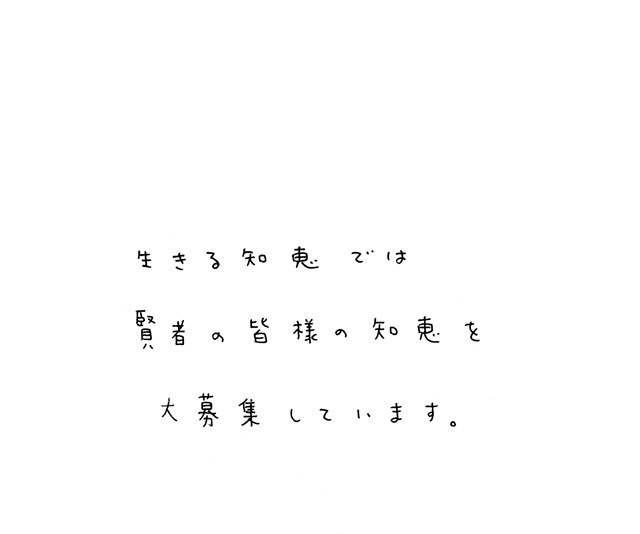 生きる知恵では
賢者の皆様の知恵を
大募集しています。